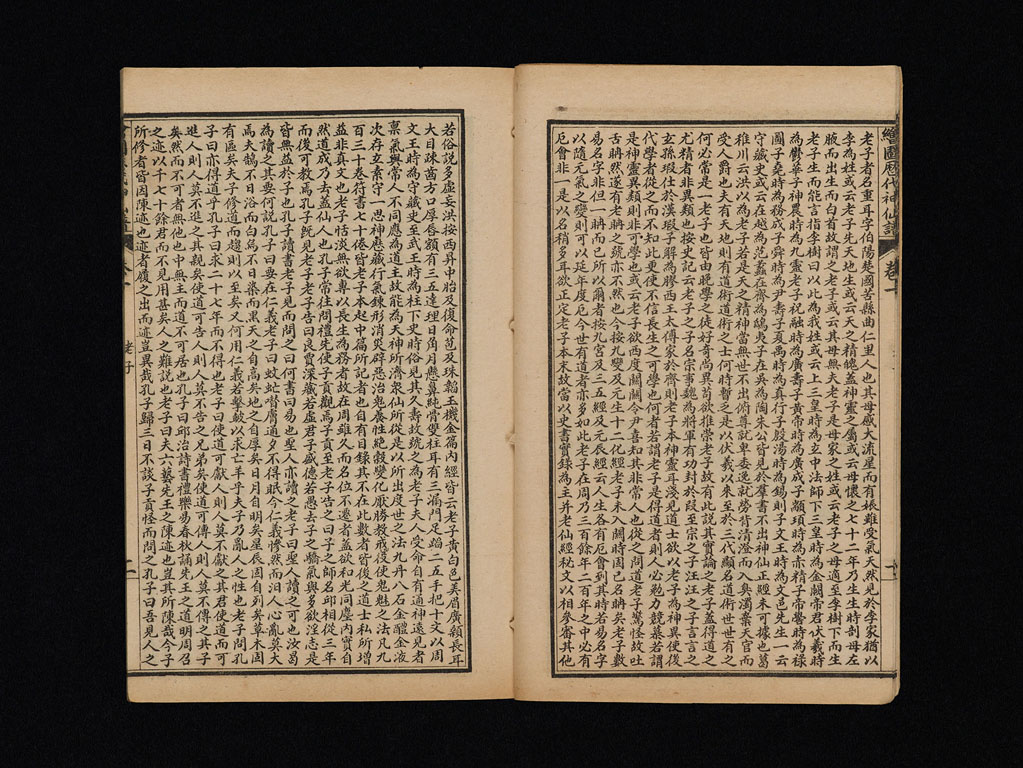 繪圖歷代神仙譜
老子者名重耳字伯陽楚國苦縣曲仁里人也其母感大流星而有娠雖受氣天然見於李家猶以
李為姓或云老子先天地生或云天之精魄蓋神靈之屬或云母懷之七十二年乃生生時剖母左
腋而出生而白首故謂之老子或云其母無夫老子是母家之姓或云老子之母適至李樹下而生
老子生而能言指李樹曰以此為我姓或云上三皇時為玄中法師下三皇時為金闕帝君伏羲時
為鬱華子神農時為九靈老子祝融時為廣壽子黃帝時為廣成子顓頊時為赤精子帝嚳時為祿
圖子堯時為務成子舜時為尹壽子夏禹時為真行子殷湯時為錫則子文王時為文邑先生一云
守藏史或云在越為范蠡在齊為鴟夷子在吳為陶朱公皆見於羣書不出神仙正經未可據也葛
稚川云洪以為老子若是天之精神當無世不出俯尊就卑委逸就勞背清澄而入臭濁棄天官而
受人爵也夫有天地則有道術道術之士何時暫乏是以伏羲以來至於三代顯名道術世世有之
何必常是一老子也皆由晚學之徒好奇尚異苟欲推崇老子故有此說其實論之老子蓋得道之
尤精者非異類也按史記云老子之子名宗事魏為將軍有功封於段至宗之子汪汪之子言言之
玄孫瑕仕於漢瑕子解為膠西王太傅家於齊則老子本神靈耳淺見道士欲以老子為神異使後
代學者從之而不知此更使不信長生之可學也何者若謂老子是得道者則人必勉力競慕若謂
是神靈異類則非可學也或云老子欲西度關關令尹喜知其非常人也從之問道老子驚怪故吐
舌聃然遂有老聃之號亦不然也今按九變及元生十二化經老子未入關時固已名聃矣老子數
易名字非但一聃而已所以爾者按九宮及三五經及元辰經云人生各有厄會到其時若易名字
以隨元氣之變則可以延年度厄今世有道者亦多如此老子在周乃三百餘年二百年之中必有
厄會非一是以名稍多耳欲正定老子本末故當以史書實錄為主并老仙經秘文以相參審其他
若俗說多虛妄洪按西昇中胎及復命苞及珠韜玉機金篇內經皆云老子黃白色美眉廣顙長耳
大目疎齒方口厚唇額有三五達理日角月懸鼻純骨雙柱耳有三漏門足蹈二五手把十文以周
文王時為守藏史至武王時為柱下史時俗見其久壽故號之為老子夫人受命自有通神遠見者
稟氣與常人不同應為道主故能為天神所濟衆仙所從是以所出度世之法九丹八石金醴金液
次存玄素守一思神歷藏行氣鍊形消災辟惡治鬼養性絕穀變化厭勝教戒役使鬼魅之法凡九
百三十卷符書七十卷皆老子本起中篇所記者也自有目錄其不在此數者皆後之道士私所增
益非真文也老子恬淡無欲專以長生為務者故在周雖久而名位不遷者蓋欲和光同塵內實自
然道成乃去蓋仙人也孔子常往問禮先使子貢觀焉子貢至老子告之曰子之師名邱相從三年
而後可教焉孔子既見老子老子告曰良賈深藏若虛君子盛德若愚去子之驕氣與多欲淫志是
皆無益於子也孔子讀書老子見而問之曰何書曰易也聖人亦讀之老子曰聖人讀之可也汝曷
為讀之其要何說孔子曰要在仁義老子曰蚊虻噆膚通夕不得眠今仁義慘然而汨人心亂莫大
焉夫鵠不日浴而白烏不日染而黑天之自高矣地之自厚矣日月自明矣星辰固自列矣草木固
有區矣夫子修道而趨則以至矣又何用仁義若擊鼓以求亡羊乎夫子乃亂人之性也老子問孔
子曰亦得道乎孔子曰求二十七年而不得也老子曰使道可獻人則人莫不獻之其君使道而可
進人則人莫不進之其親矣使道可告人則人莫不告之兄弟矣使道可傳人則人莫不傳之其子
矣然而不可者無他也中無主而道不可居也孔子曰邱治詩書禮樂易春秋誦先王之道明周召
之迹以干七十餘君而不見用甚矣人之難說也老子曰夫六藝先王之陳迹也豈其所陳哉今子
所修者皆因陳迹也迹者履之出而迹豈異哉孔子歸三日不談子貢怪而問之孔子曰吾見人之
老子
二